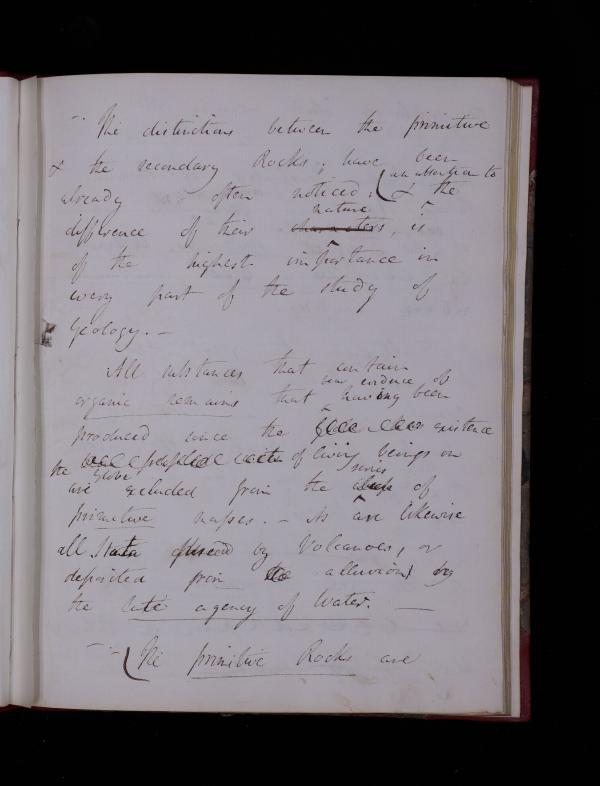 The distinctions between the primitive
& the secondary Rocks, have been
already often noticed; & an attention to the
difference of their characters nature, is
of the highest importance in
every part of the study of
Geology. —
All substances that contain
organic remains that bear evidence of having been
produced since the existence
of living beings on
the globe are excluded from the series of
primitive masses. — As are likewise
all Strata by Volcanoes, or
deposited from alluvion by
the late agency of Water. —
The primitive Rocks are